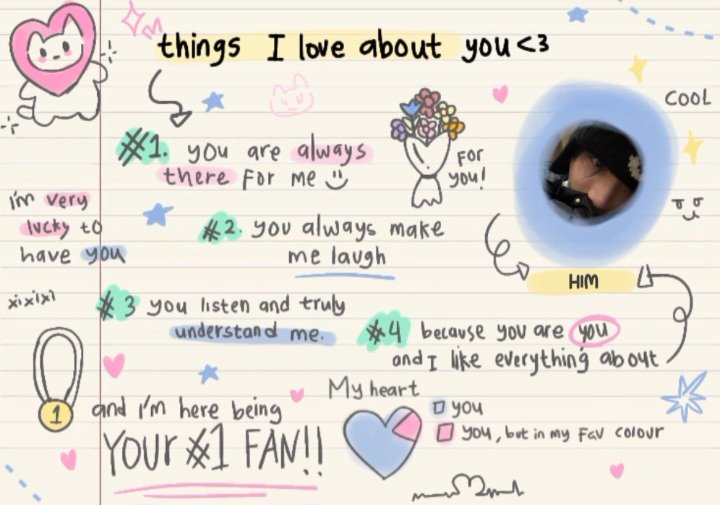 things I love about you <3
COOL
#1. you are always
there for me
FOR
you!
i'm very
lucky to
have you
#2. you always make
me laugh
HIM
xixixi
#3 you listen and truly
understand me.
#4 because you are you
and I like everything about
My heart
you
you, but in my Fav colour
1
and i'm here being
YOUr #1 FAN!!